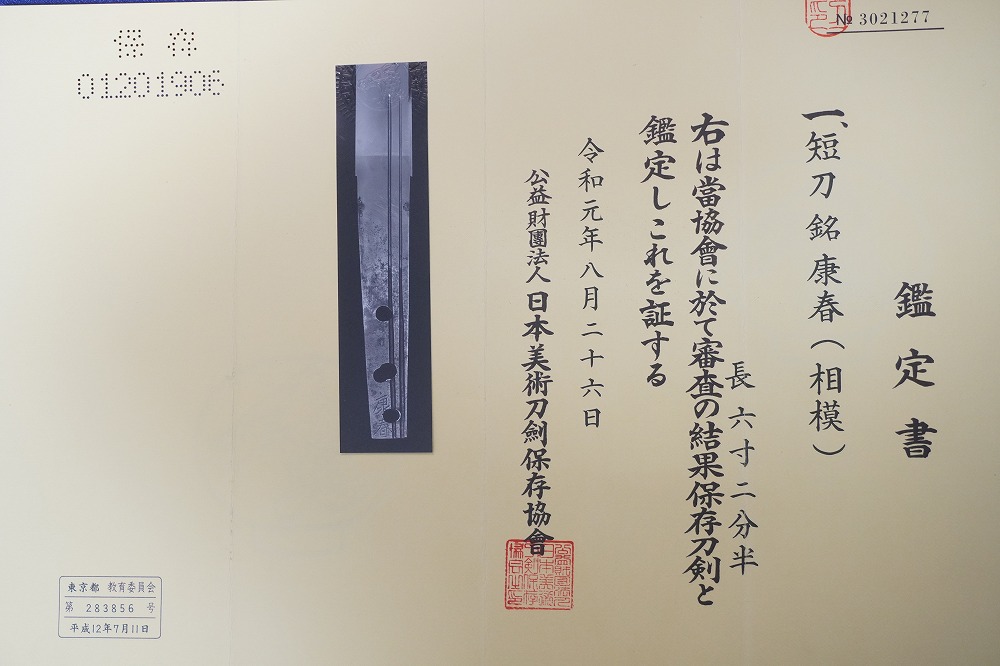 № 3021277
鑑定書
一、短刀 銘 康春(相模)
長 六寸二分半
右は當協會に於て審査の結果保存刀剣と
鑑定しこれを証する
令和元年八月二十六日
公益財團法人 日本美術刀劍保存協會
保存
01201906
東京都 教育委員会
第 283856 号
平成12年7月11日